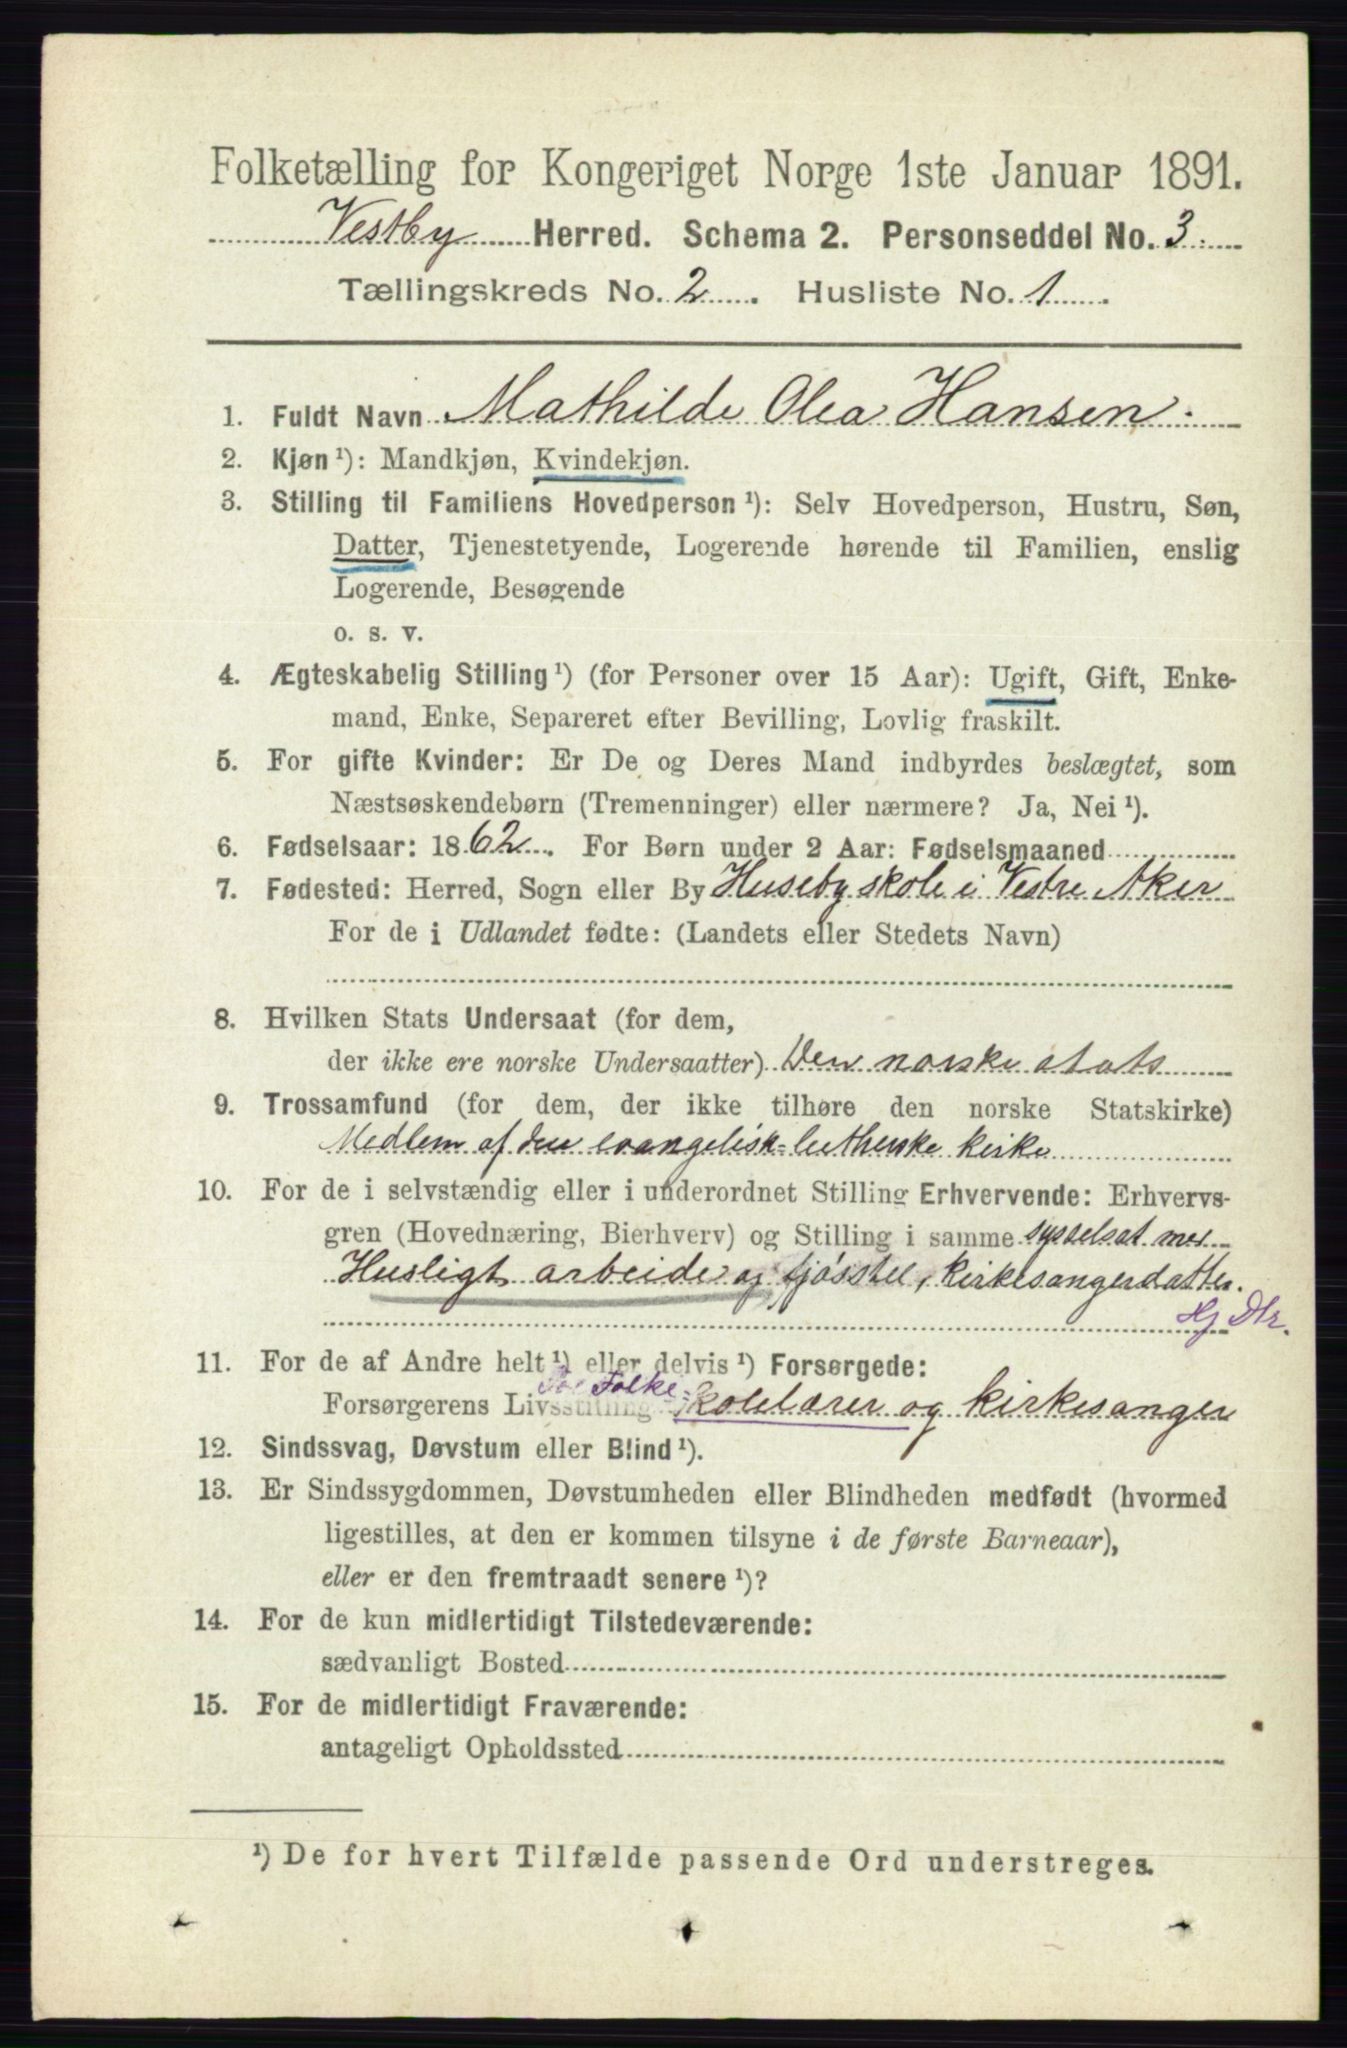 Folketælling for Kongeriget Norge 1ste Januar 1891.
Vestby Herred. Schema 2. Personseddel No. 3.
Tællingskreds No. 2. Husliste No. 1.
1. Fuldt Navn Mathilde Olea Hansen.
2. Kjøn ¹): Mandkjøn, Kvindekjøn.
3. Stilling til Familiens Hovedperson ¹): Selv Hovedperson, Hustru, Søn,
Datter, Tjenestetyende, Logerende hørende til Familien, enslig
Logerende, Besøgende
o. s. v.
4. Ægteskabelig Stilling ¹) (for Personer over 15 Aar): Ugift, Gift, Enke-
mand, Enke, Separeret efter Bevilling, Lovlig fraskilt.
5. For gifte Kvinder: Er De og Deres Mand indbyrdes beslægtet, som
Næstsøskendebørn (Tremenninger) eller nærmere? Ja, Nei ¹).
6. Fødselsaar: 1862. For Børn under 2 Aar: Fødselsmaaned
7. Fødested: Herred, Sogn eller By Huseby skole i Vestre Aker
For de i Udlandet fødte: (Landets eller Stedets Navn)
8. Hvilken Stats Undersaat (for dem,
der ikke ere norske Undersaatter) Den norske stats
9. Trossamfund (for dem, der ikke tilhøre den norske Statskirke)
Medlem af den evangelisk-lutherske kirke
10. For de i selvstændig eller i underordnet Stilling Erhvervende: Erhvervs-
gren (Hovednæring, Bierhverv) og Stilling i samme sysselsat med
Husligt arbeide og fjøsstel, kirkesangerdatter.
Hj Dtr.
11. For de af Andre helt ¹) eller delvis ¹) Forsørgede:
Folke-
Forsørgerens Livsstilling skolelærer og kirkesanger
12. Sindssvag, Døvstum eller Blind ¹).
13. Er Sindssygdommen, Døvstumheden eller Blindheden medfødt (hvormed
ligestilles, at den er kommen tilsyne i de første Barneaar),
eller er den fremtraadt senere ¹)?
14. For de kun midlertidigt Tilstedeværende:
sædvanligt Bosted
15. For de midlertidigt Fraværende:
antageligt Opholdssted
¹) De for hvert Tilfælde passende Ord understreges.